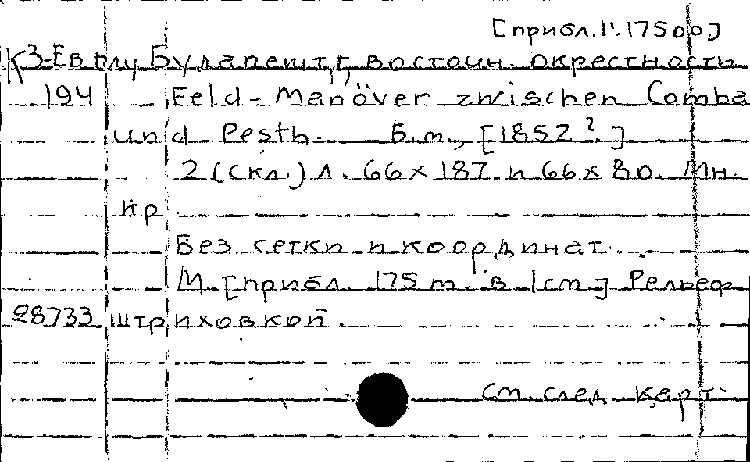 [прибл. 1:17500]
К 3-Евр Будапешт, восточн. окрестности
194 Feld-Manöver zwischen Comba
und Pesth. Б.м., [1852?]
2 (скл.) л. 66 x 187 и 66 x 80. Мн.
кр
Без сетки и координат.
М. [прибл. 175 m. в 1 cm.] Рельеф
98733 штриховкой.
См. след. карт.